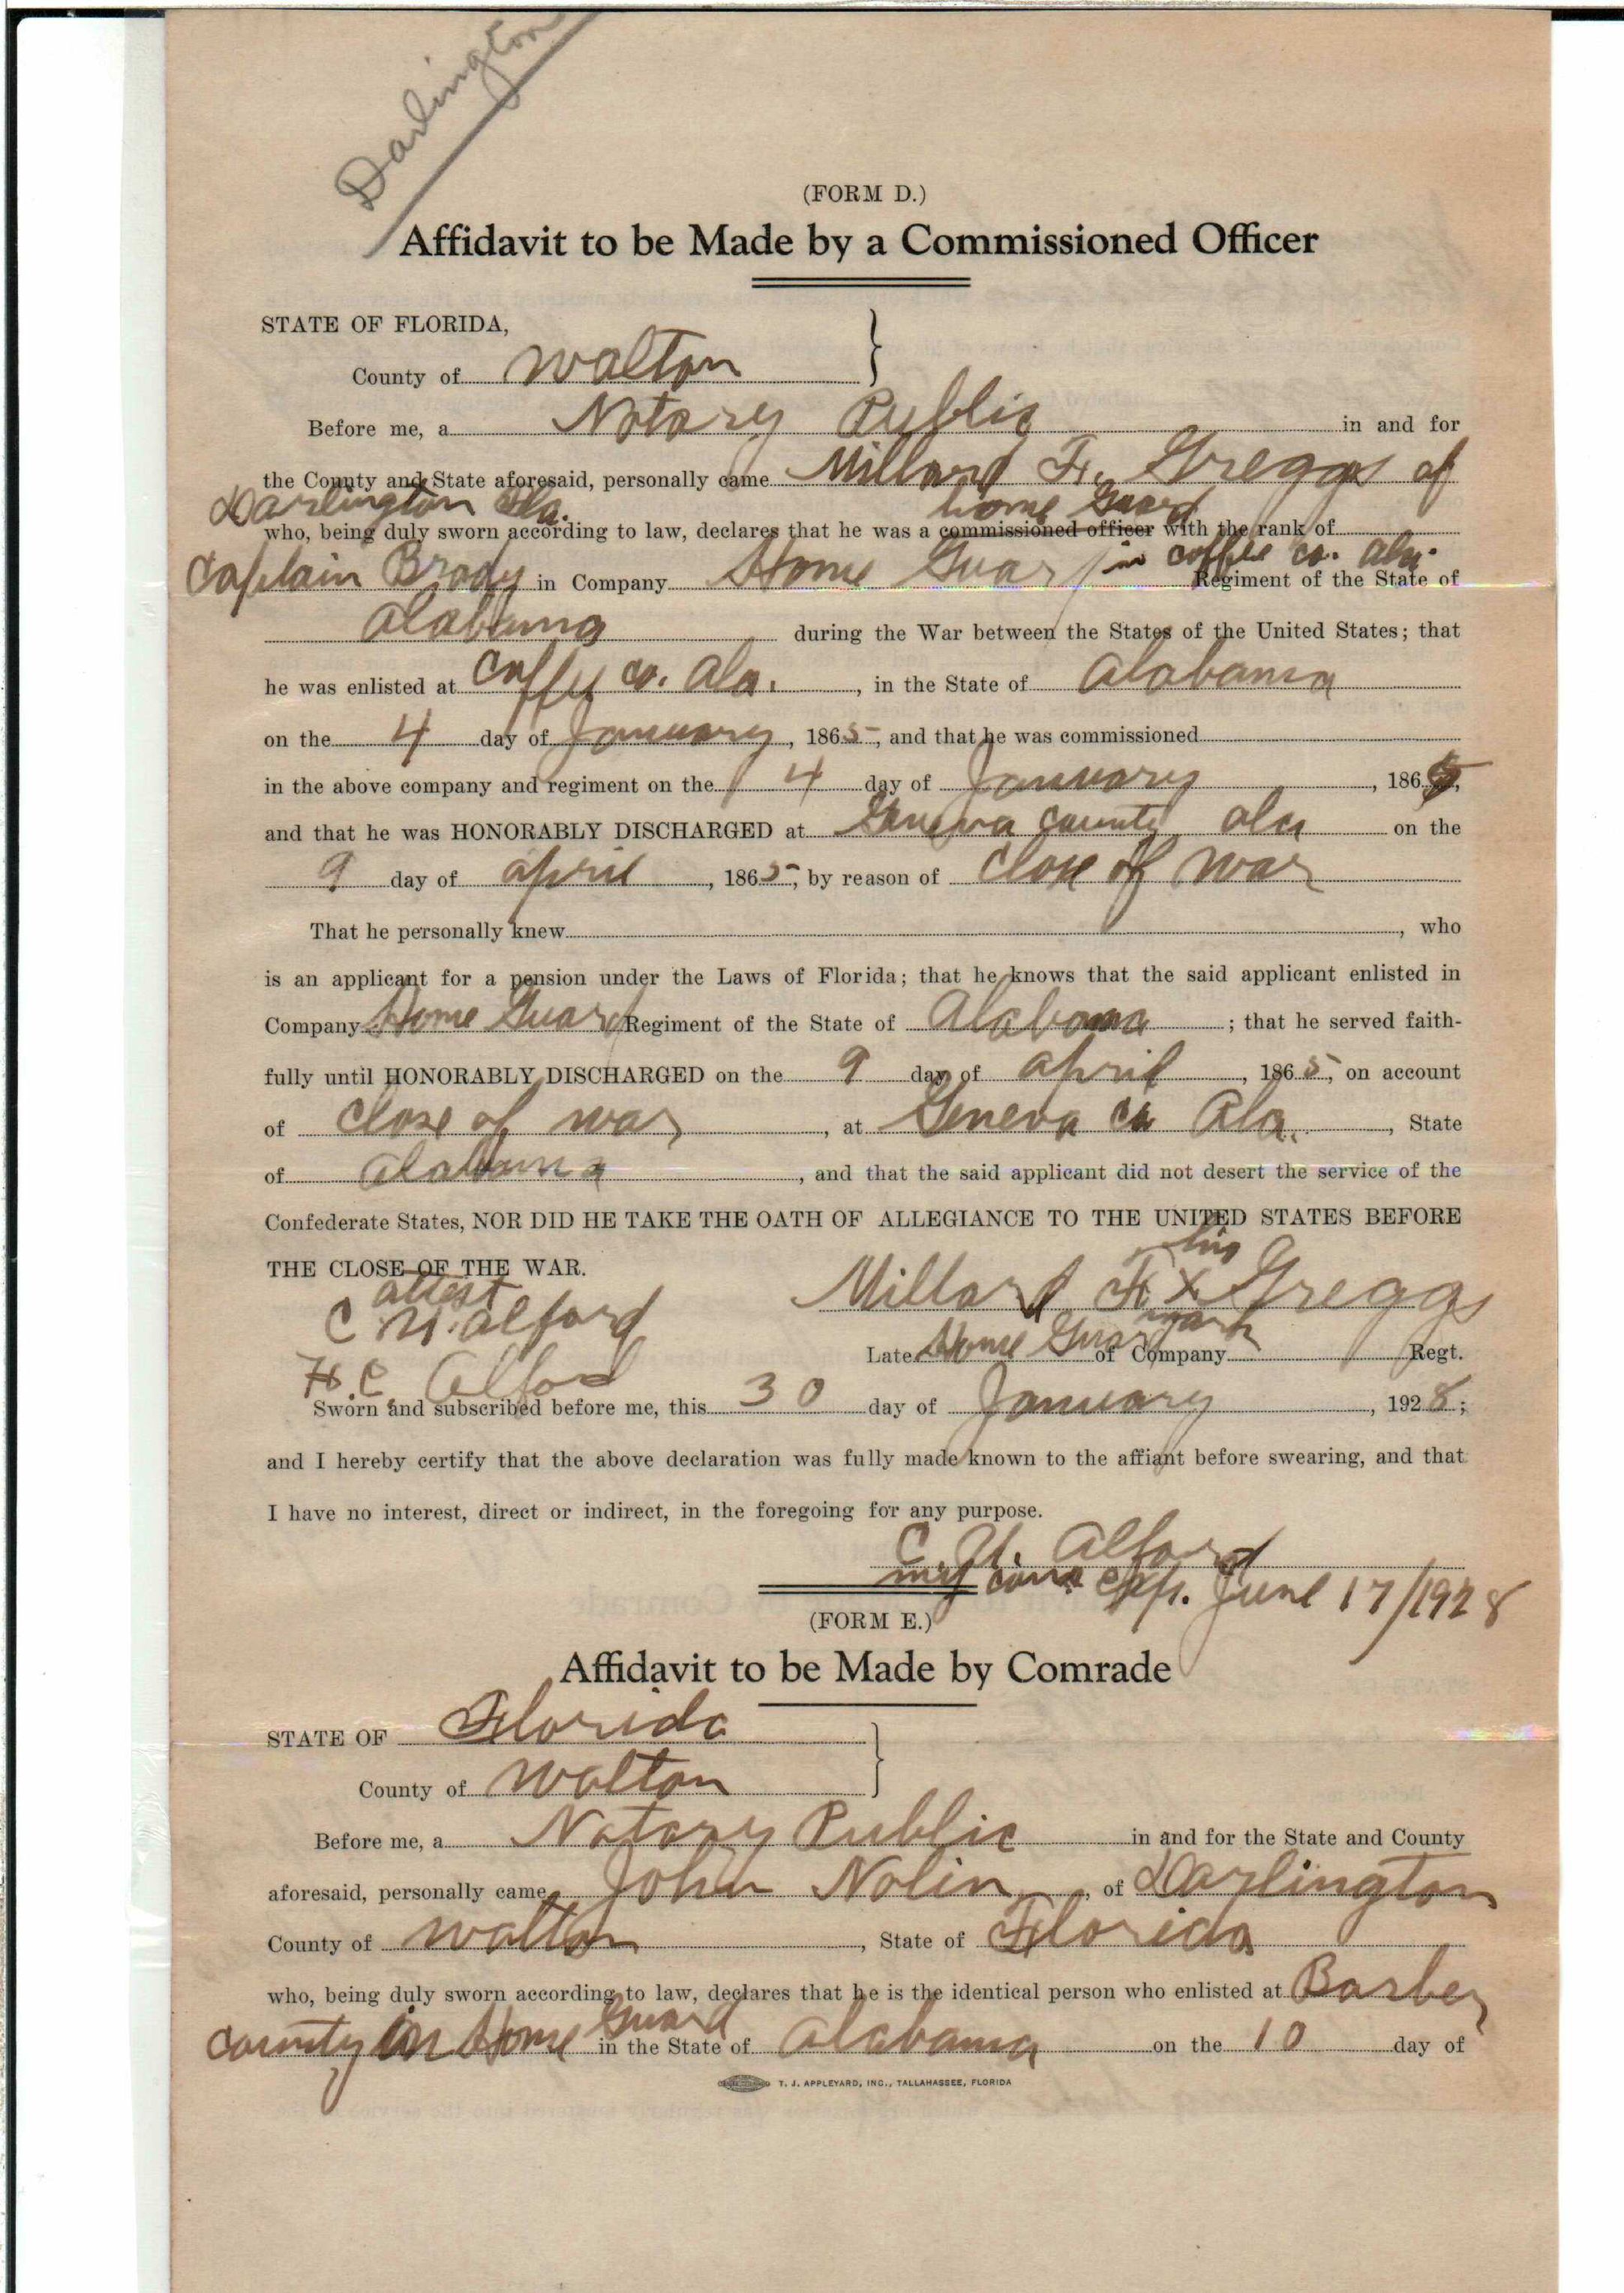 Darlington
(FORM D.)
Affidavit to be Made by a Commissioned Officer
STATE OF FLORIDA,
County of Walton
Before me, a Notary Public in and for
the County and State aforesaid, personally came Millard F. Greggs of
Darlington Fla. home Guard
who, being duly sworn according to law, declares that he was a commissioned officer with the rank of
Captain Brady in Company Home Guard in coffee co. ala. Regiment of the State of
alabama during the War between the States of the United States; that
he was enlisted at Coffy co. Ala., in the State of Alabama
on the 4 day of January, 1865, and that he was commissioned
in the above company and regiment on the 4 day of January, 1865,
and that he was HONORABLY DISCHARGED at Geneva county ala on the
9 day of april, 1865, by reason of Close of war
That he personally knew, who
is an applicant for a pension under the Laws of Florida; that he knows that the said applicant enlisted in
Company Home Guard Regiment of the State of Alabama; that he served faith-
fully until HONORABLY DISCHARGED on the 9 day of april, 1865, on account
of Close of war, at Geneva co Ala., State
of alabama, and that the said applicant did not desert the service of the
Confederate States, NOR DID HE TAKE THE OATH OF ALLEGIANCE TO THE UNITED STATES BEFORE
THE CLOSE OF THE WAR.
his
attest Millard F. X Greggs
C. N. Alford mark
Late Home Guard of Company Regt.
H. C. Alford
Sworn and subscribed before me, this 30 day of January, 1928;
and I hereby certify that the above declaration was fully made known to the affiant before swearing, and that
I have no interest, direct or indirect, in the foregoing for any purpose.
C. N. Alford
my com exp. June 17/1928
(FORM E.)
Affidavit to be Made by Comrade
STATE OF Florida
County of Walton
Before me, a Notary Public in and for the State and County
aforesaid, personally came John Nolin, of Darlington
County of Walton, State of Florida
who, being duly sworn according to law, declares that he is the identical person who enlisted at Barber
county in Home Guard in the State of Alabama on the 10 day of
T. J. APPLEYARD, INC., TALLAHASSEE, FLORIDA